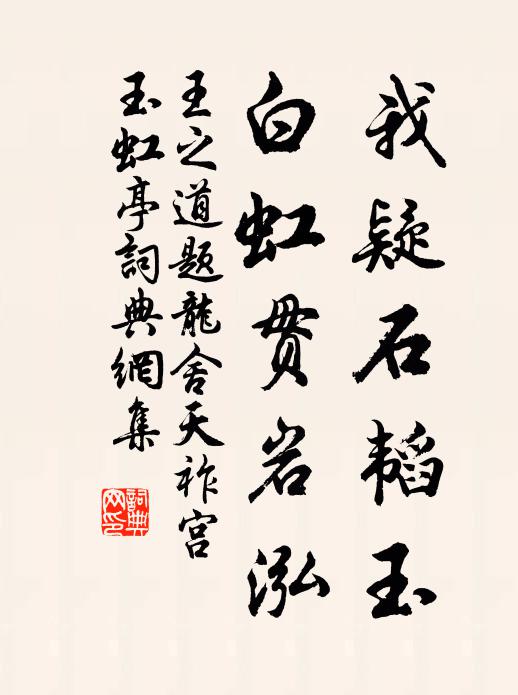 我疑石韬玉
白虹贯岩泓
王之道题龍舍天祚宫
玉虹亭詞典網集
詞典
网印